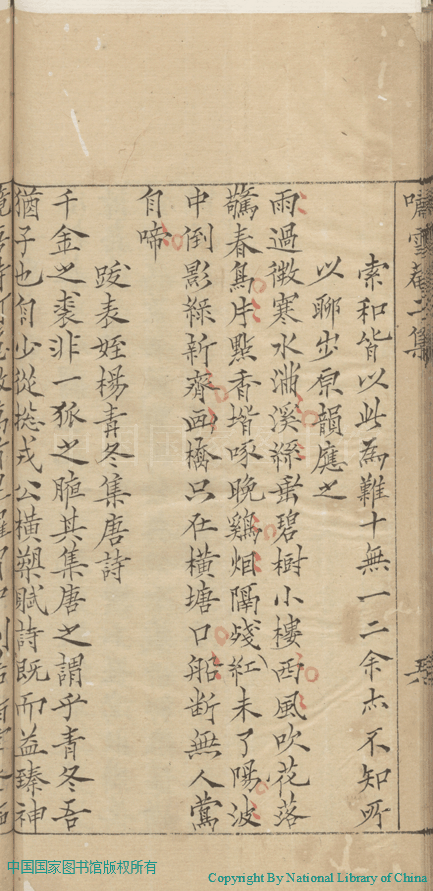 嘯雪菴二集
索和皆以此為難十無一二余亦不知所
以聊出原韻應之
雨過微寒水滿溪綠垂碧樹小樓西風吹花落
驚春鳥片點香堦啄晚鷄烟隔殘紅未了陽波
中倒影綠新齊画橋只在橫塘口船斷無人鶯
自啼
跋表姪楊青冬集唐詩
千金之裘非一狐之腋其集唐之謂乎青冬吾
猶子也自少從捴戎公橫槊賦詩既而益臻神
中国国家图书馆版权所有
Copyright By National Library of China